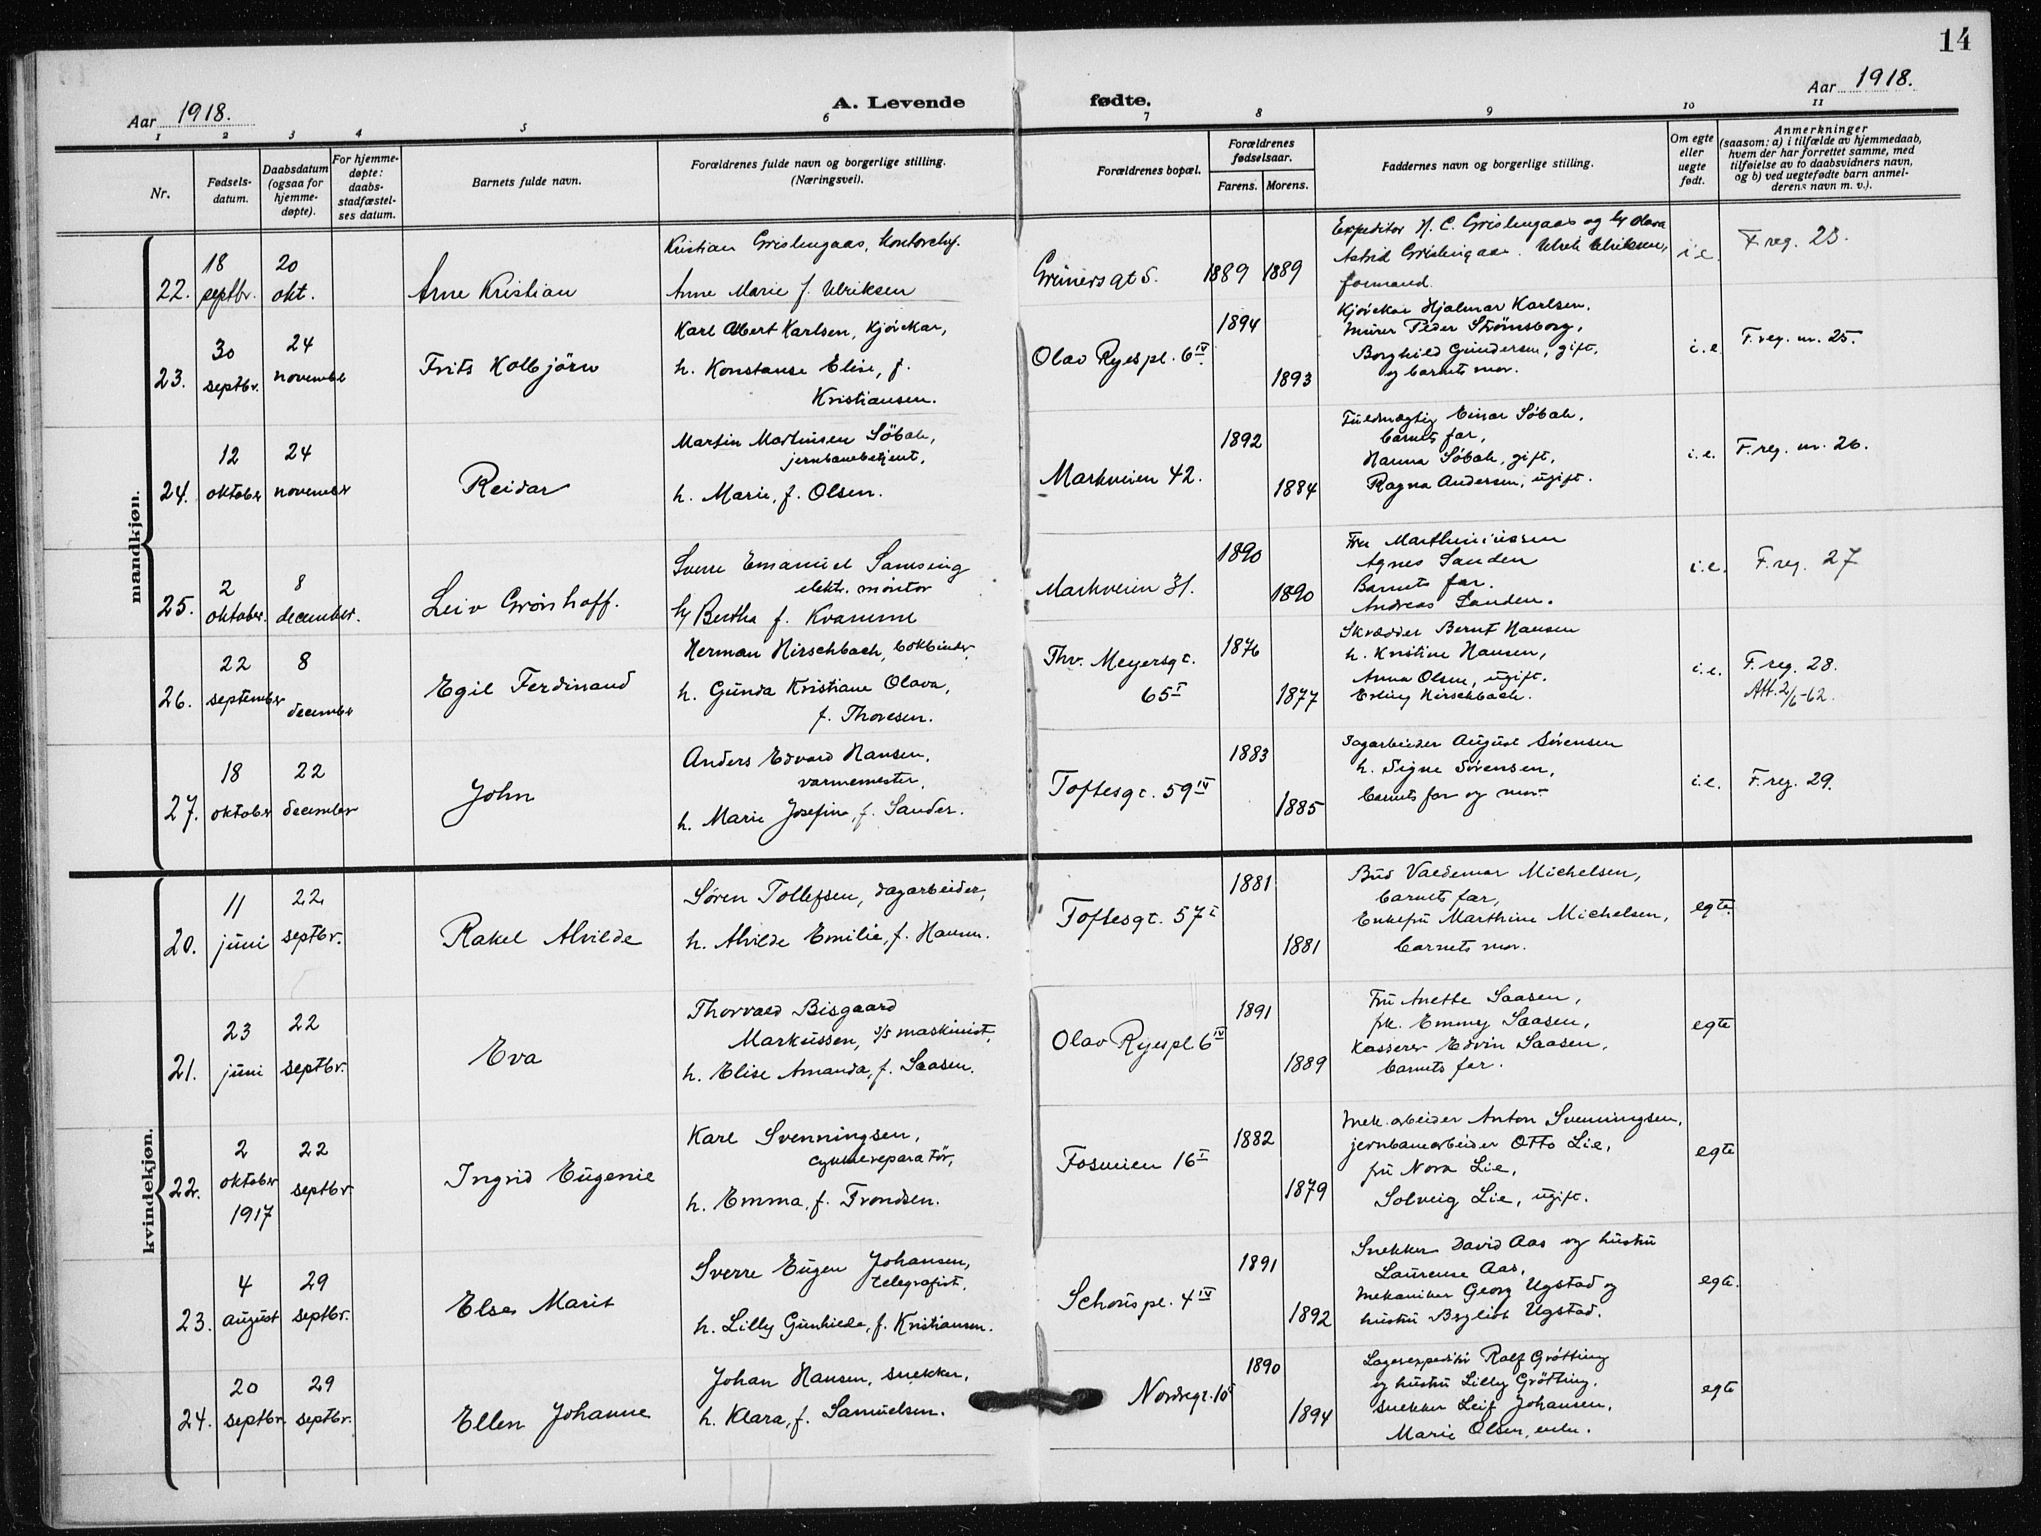 14
Aar 1918.
A. Levende fødte.
Aar 1918.
1 2 3 4 5 6 7 8 9 10 11
Nr.
Fødsels-
datum.
Daabsdatum
(ogsaa for
hjemme-
døpte).
For hjemme-
døpte:
daabs-
stadfæstel-
ses datum.
Barnets fulde navn.
Forældrenes fulde navn og borgerlige stilling.
(Næringsvei).
Forældrenes bopæl.
Forældrenes
fødselsaar.
Farens. Morens.
Faddernes navn og borgerlige stilling.
Om egte
eller
uegte
født.
Anmerkninger
(saasom: a) i tilfælde av hjemmedaab,
hvem der har forrettet samme, med
tilføielse av to daabsvidners navn,
og b) ved uegtefødte barn anmel-
derens navn m. v.).
mandkjøn.
22.
18
septbr.
20
okt.
Arne Kristian
Kristian Grislingaas,
Anne Marie f. Ulriksen
Grüners gt 5.
1889 1889
Expeditør H. C. Grislingaas og Olava
Astrid Grislingaas. Ulrik Ulriksen,
formand.
i.e.
F reg. 23.
23.
30
septbr.
24
november
Frits Kolbjörn
Karl Albert Karlsen, kjörekar,
h. Konstanse Elise, f.
Kristiansen.
Olav Ryespl. 6 IV
1894
1893
Kjörekar Hjalmar Karlsen.
Murer Peder Strömsborg,
Borghild Gundersen, gift.
og barnets mor.
i.e.
F. reg. nr. 25.
24.
12
oktober
24
november
Reidar
Martin Martinsen Söbak,
jernbanebetjent,
h. Marie, f. Olsen.
Markveien 42.
1892
1884
Fuldmægtig Einar Söbak,
barnets far,
Hanna Söbak, gift,
Ragna Andersen, ugift.
i.e.
F. reg. nr. 26.
25.
2
oktober.
8
december.
Leiv Grönhoff.
Sverre Emanuel Samsing
elektr. montör
h Bertha f. Kvamme
Markveien 31.
1890
1890
Fru
Agnes Sanden
Barnets far.
Andreas Sanden.
i.e.
F. reg. 27
26.
22
september
8
december
Egil Ferdinand
Herman Hirschbach, bokbinder,
h. Gunda Kristiane Olava,
f. Thoresen.
Thv. Meyersgt.
65 I
1876
1877
Skrædder Bernt Hansen
h. Kristine Hansen,
Anna Olsen, ugift.
Erling Hirschbach.
i.e.
F. reg. 28.
Att. 2/6-62.
27.
18
oktober
22
december
John
Anders Edvard Hansen,
varmemester,
h. Marie Josefine, f. Sander.
Toftesgt. 59 IV
1883
1885
Dagarbeider August Sörensen
h. Signe Sörensen,
barnets far og mor.
i.e.
F. reg. 29.
kvindekjøn.
20.
11
juni
22
septbr.
Rakel Alvilde
Sören Tollefsen, dagarbeider,
h. Alvilde Emilie, f. Hansen.
Toftesgt. 57 I
1881
1881
Bud Valdemar Michelsen,
barnets far,
Enkefru Marthine Michelsen,
barnets mor.
egte.
21.
23
juni
22
septbr.
Eva
Thorvald Bisgaard
Markussen, s/s maskinist,
h. Elise Amanda, f. Saasen.
Olav Ryespl. 6 IV
1891
1889
Fru Anette Saasen,
frk. Emmy Saasen,
Kasserer Edvin Saasen,
barnets far.
egte
22.
2
oktober
1917
22
septbr.
Ingrid Eugenie
Karl Svenningsen,
cykkelreparatör,
h. Emma, f. Trondsen.
Fosveien 16 I
1882
1879
Mek. arbeider Anton Svenningsen,
jernbanearbeider Otto Lie,
fru Nora Lie,
Solveig Lie, ugift.
egte
23.
4
august
29
septbr.
Else Marit
Sverre Eugen Johansen,
telegrafist,
h. Lilly Gunhilde, f. Kristiansen.
Schouspl. 4 IV
1891
1892
Snekker David Aas og hustru
Laurense Aas,
mekaniker Georg Ugstad og
hustru Bergliot Ugstad.
egte.
24.
20
septbr.
29
septbr.
Ellen Johanne
Johan Hansen, snekker,
h. Klara, f. Samuelsen.
Nordregt. 10
1890
1894
Lagerexpeditör Rolf Grötting
og hustru Lilly Grötting.
snekker Leif Johansen,
Marie Olsen, enke.
egte